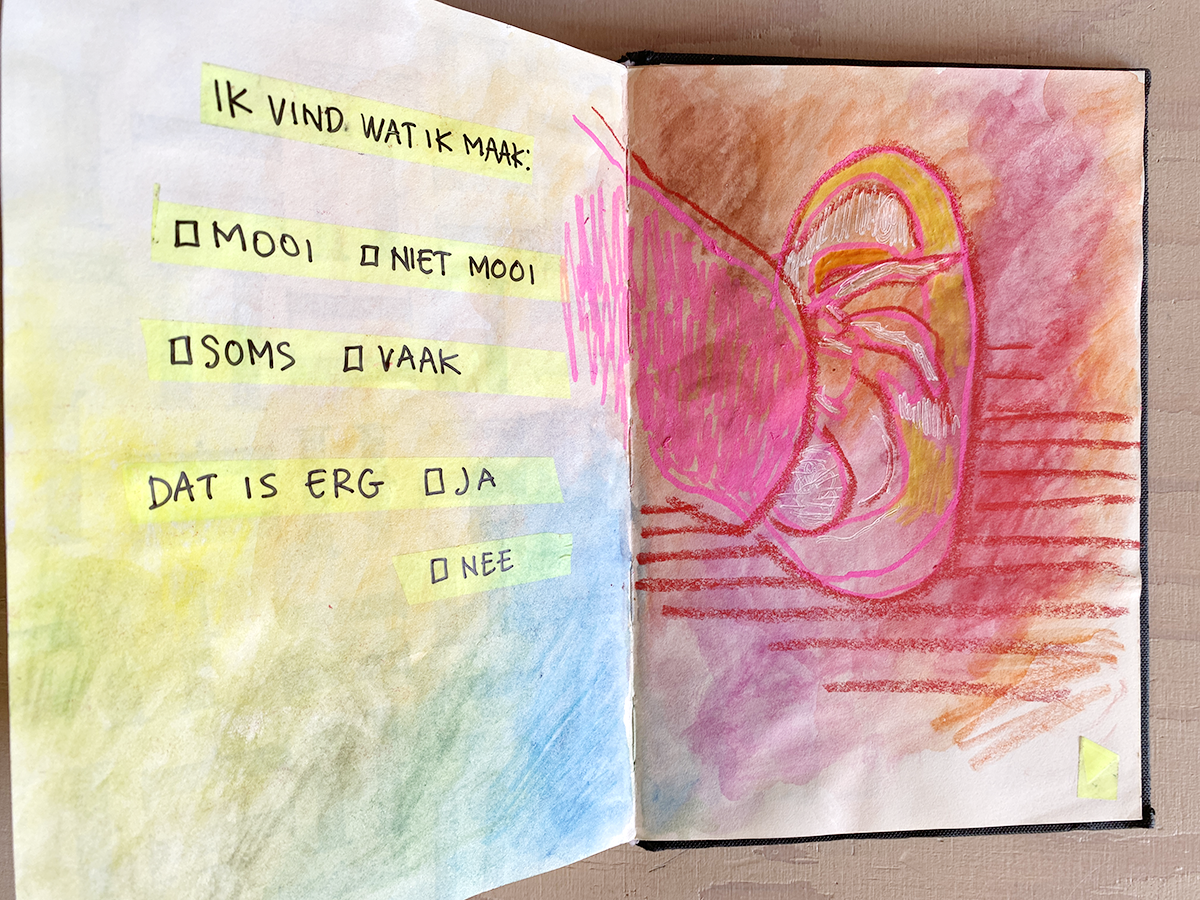 IK VIND WAT IK MAAK:
☐ MOOI ☐ NIET MOOI
☐ SOMS ☐ VAAK
DAT IS ERG ☐ JA
☐ NEE